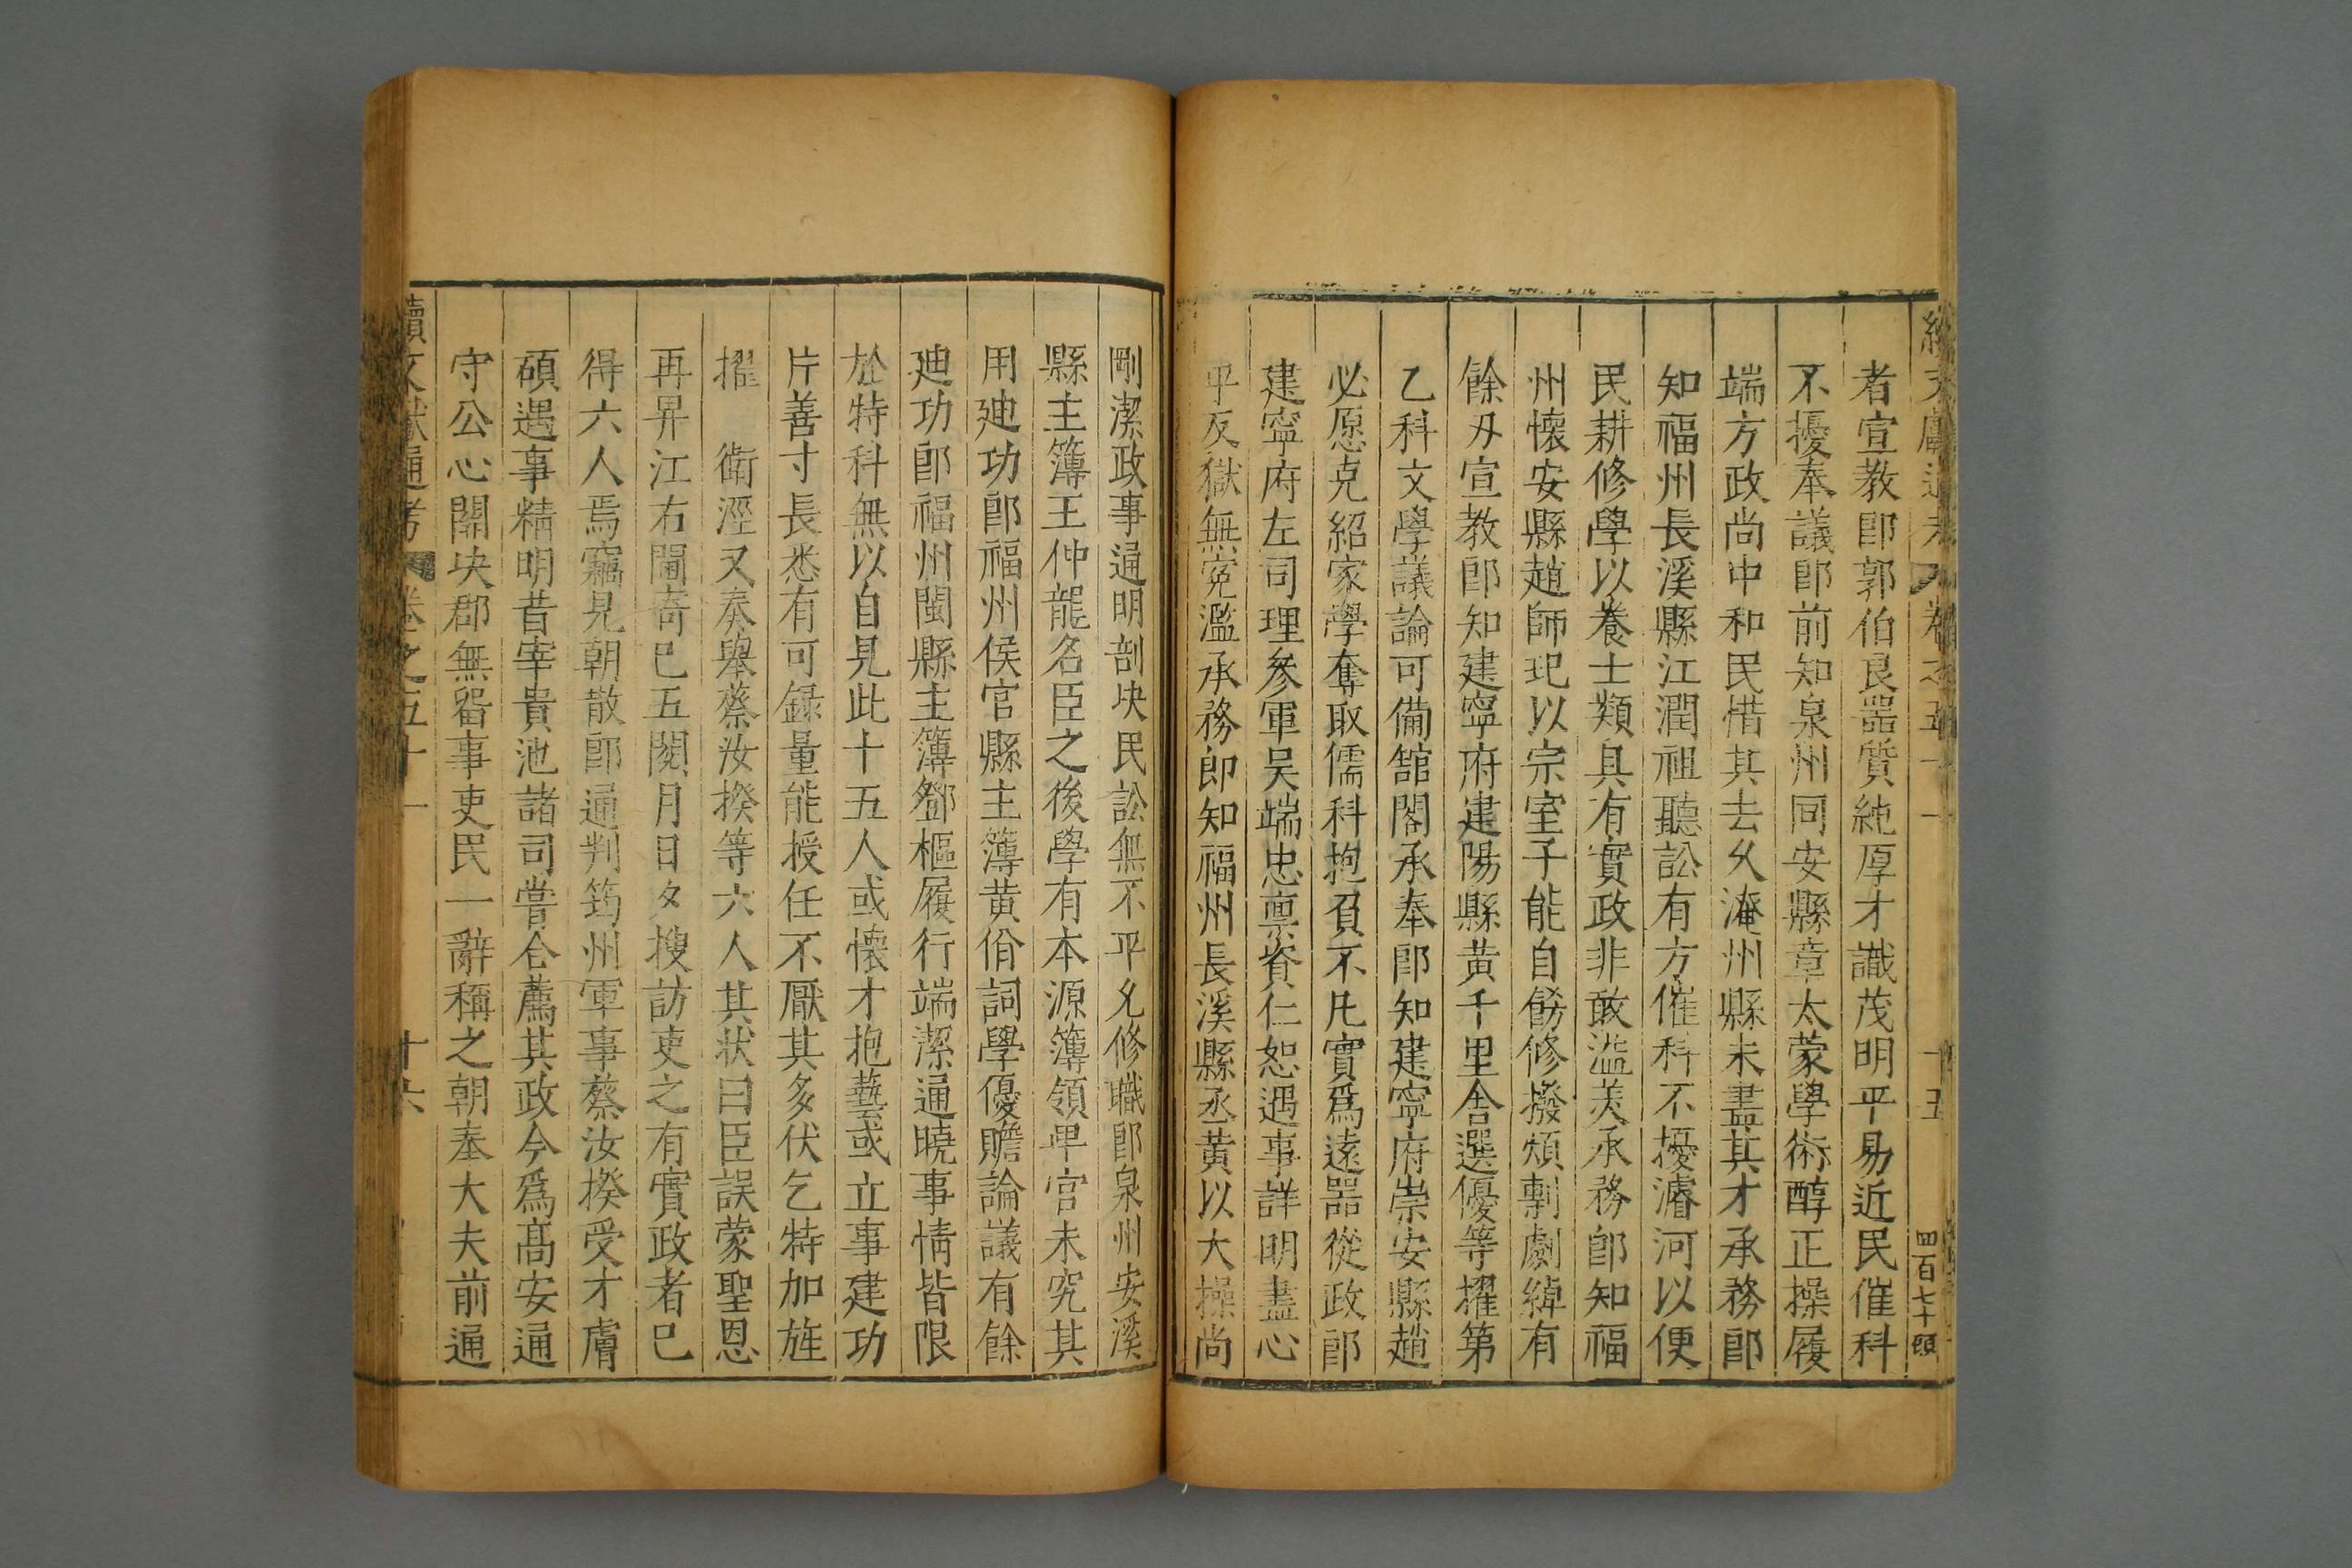 續文獻通考 卷之五十一 十五 四百七十號
者宣教郎郭伯良器質純厚才識茂明平易近民催科
不擾奉議郎前知泉州同安縣章太蒙學術醇正操履
端方政尚中和民惜其去久淹州縣未盡其才承務郎
知福州長溪縣江潤祖聽訟有方催科不擾濬河以便
民耕修學以養士類具有實政非敢溢美承務郎知福
州懷安縣趙師玘以宗室子能自飭修撥煩剸劇綽有
餘刃宣教郎知建寧府建陽縣黄千里舍選優等擢第
乙科文學議論可備舘閣承奉郎知建寧府崇安縣趙
必愿克紹家學奪取儒科抱負不凡實爲遠器從政郎
建寧府左司理參軍吴端忠禀資仁恕遇事詳明盡心
平反獄無寃濫承務郎知福州長溪縣丞黄以大操尚
剛潔政事通明剖决民訟無不平允修職郎泉州安溪
縣主簿王仲龍名臣之後學有本源簿領卑官未究其
用廸功郎福州侯官縣主簿黄倄詞學優贍論議有餘
廸功郎福州閩縣主簿鄧樞履行端潔通曉事情皆限
於特科無以自見此十五人或懷才抱藝或立事建功
片善寸長悉有可録量能授任不厭其多伏乞特加旌
擢 衛涇又奏舉蔡汝揆等六人其状曰臣誤蒙聖恩
再畀江右閫寄巳五閱月日夕搜訪吏之有實政者巳
得六人焉竊見朝散郎通判筠州軍事蔡汝揆受才膚
碩遇事精明昔宰貴池諸司嘗合薦其政今爲髙安通
守公心關决郡無畱事吏民一辭稱之朝奉大夫前通
續文獻通考 卷之五十一 十六